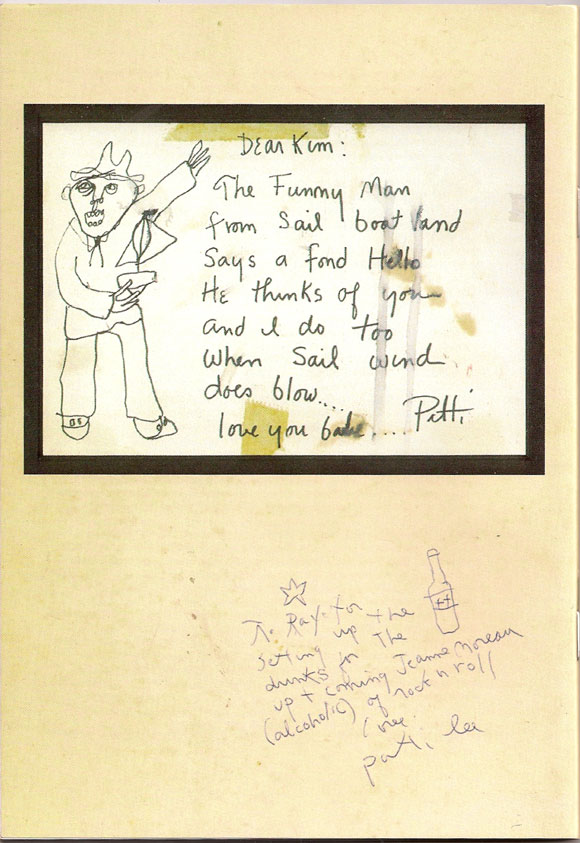 Dear Kim:
The Funny Man
from Sail boat land
Says a fond Hello
He thinks of you
and I do too
when Sail wind
does blow....
love you babe.... Patti
To Ray for
setting up the
drinks for The
up + coming Jeanne Moreau
(alcoholic) of rock n roll
love
patti lee